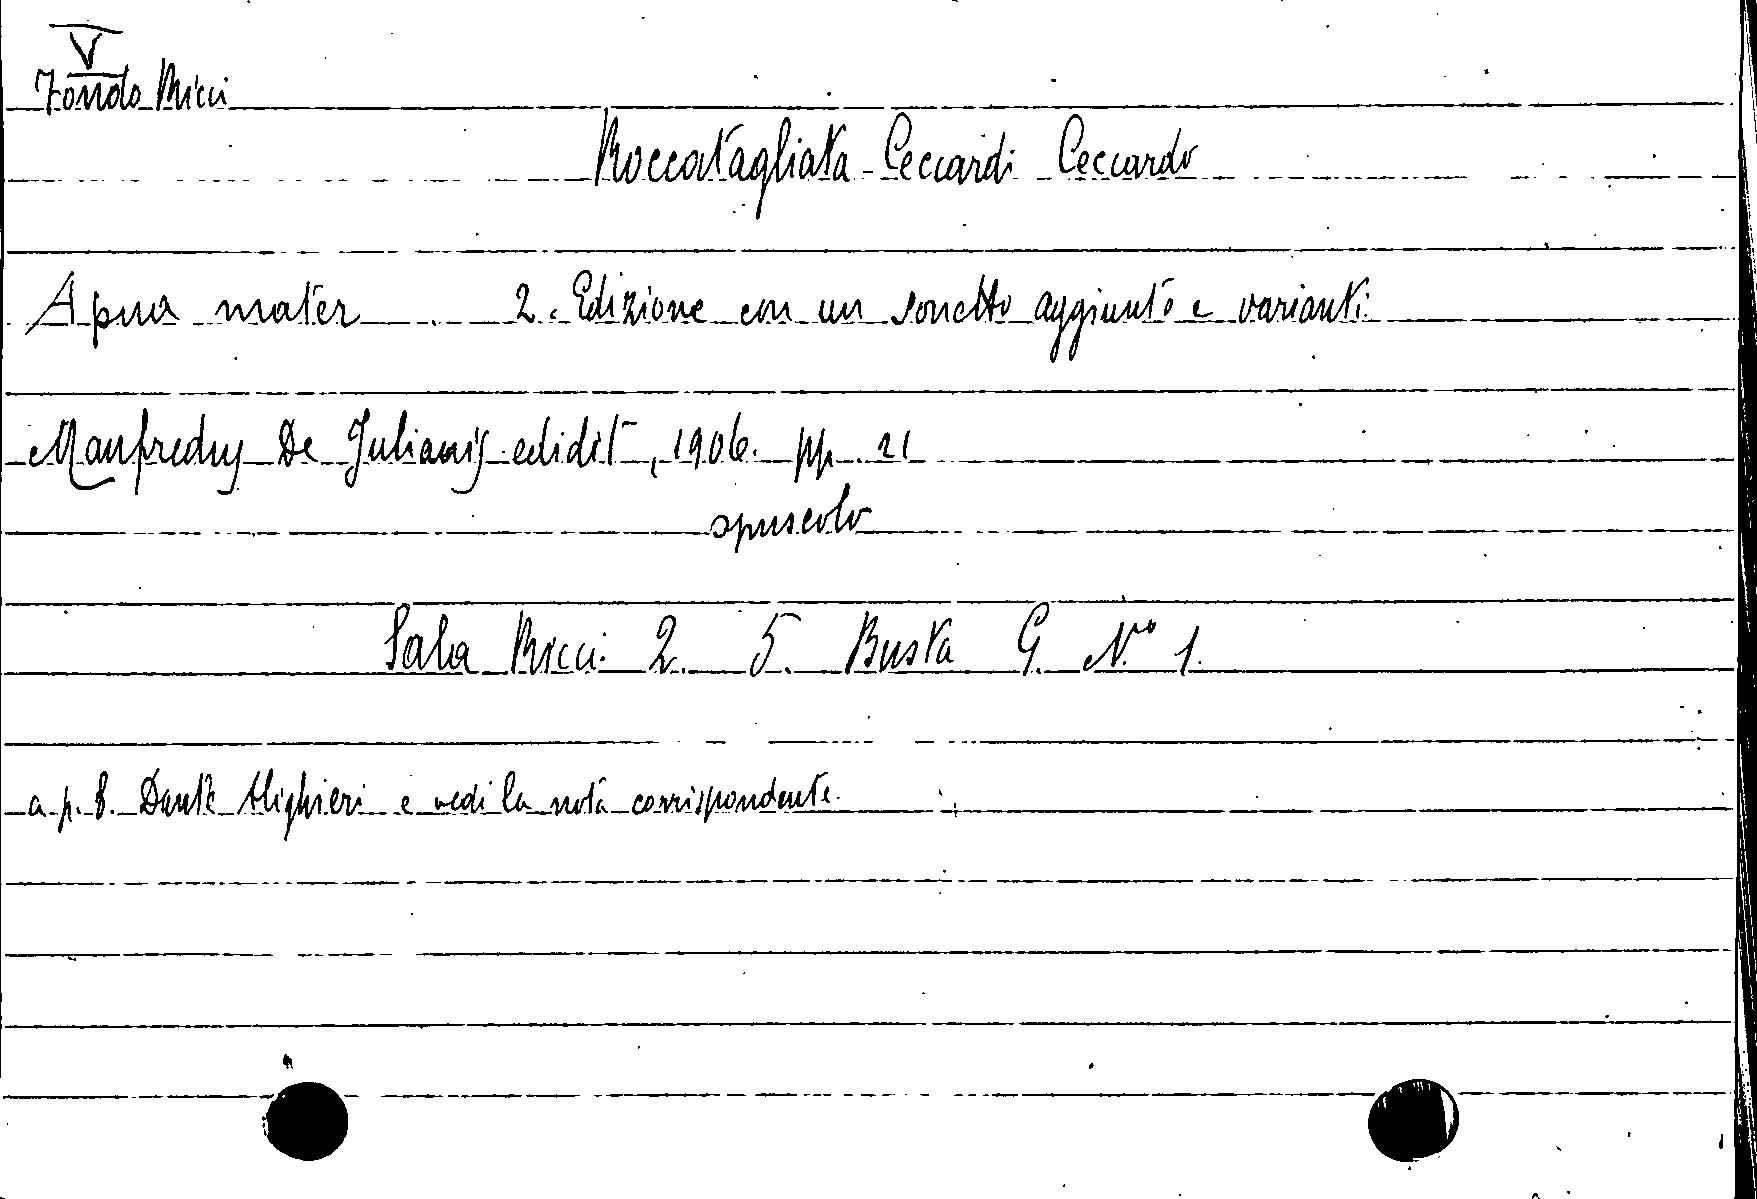 V
Fondo Ricci
Roccatagliata Ceccardi Ceccardo
Apua mater 2. Edizione con un sonetto aggiunto e varianti
Manfredus De Julianis edidit, 1906. pp. 21
opuscolo
Sala Ricci 2. 5. Busta G. No 1.
a p. 8. Dante Alighieri e vedi la nota corrispondente.